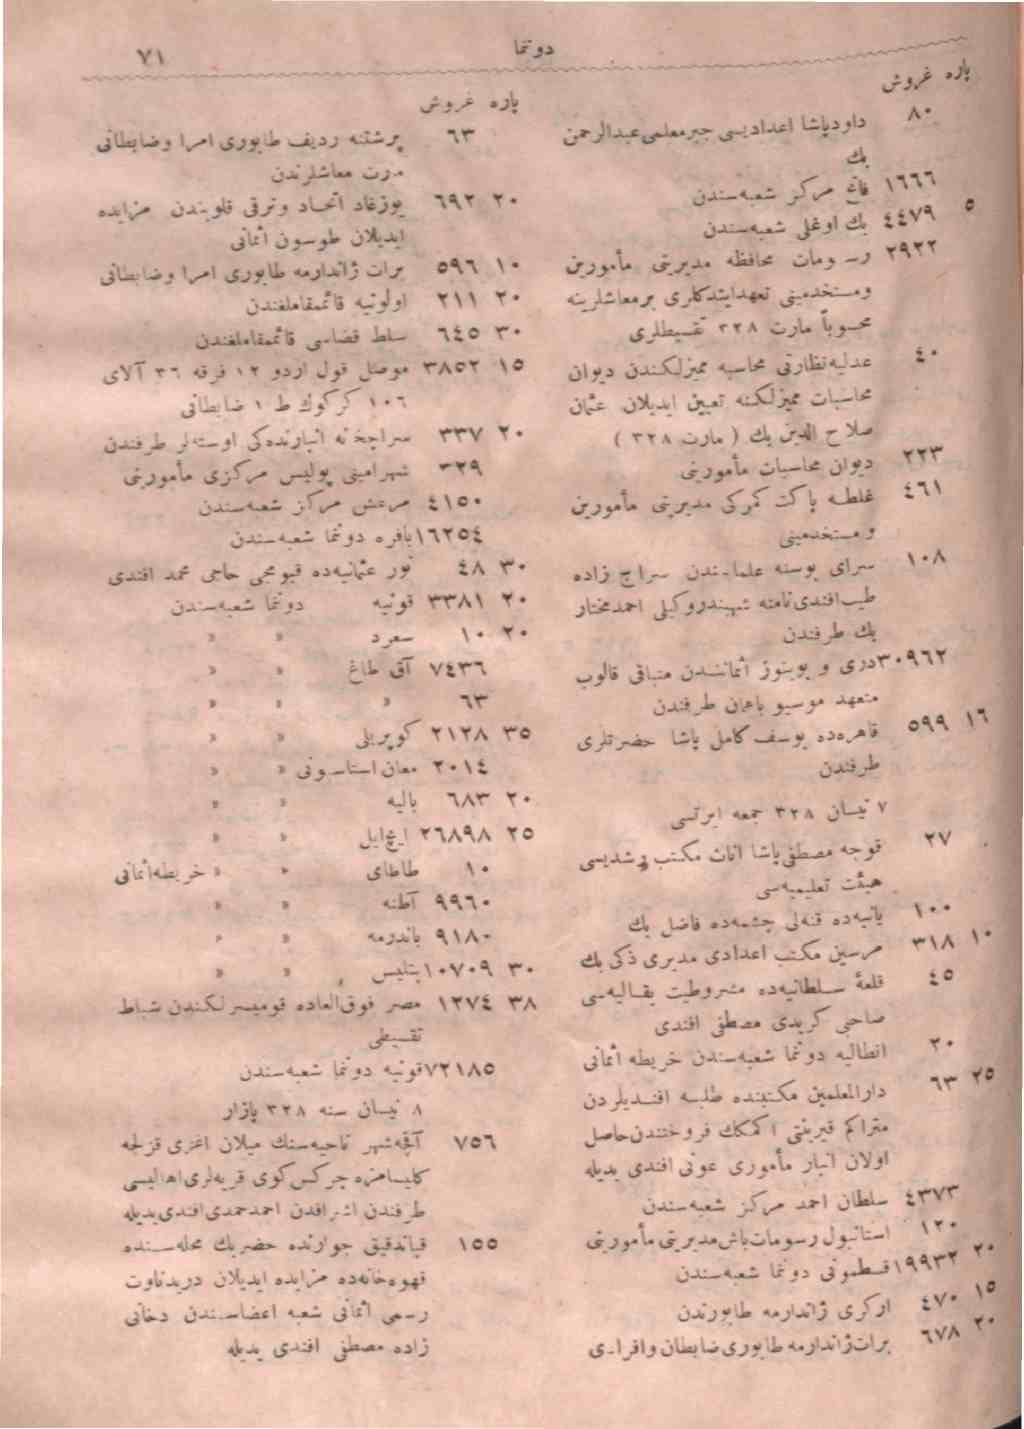 دوننما
٧١
پاره غروش
٨٠ داودپاشا اعدادیسی جبرمعلمی عبدالرحمن
بك
١٦٦٦ فاتح مركز شعبه‌سندن
٥ ٤٤٧٩ بك اوغلی شعبه‌سندن
٢٩٢٢ رسومات محافظه مدیریتی مأمورین
ومستخدمینی تعهدایتدكلری برمعاشلرینه
محسوباً مارت ٣٢٨ تقسیطلری
٤٠ عدلیه‌نظارتی محاسبه ممیزلكندن دیوان
محاسبات ممیزلكنه تعیین ایدیلان عثمان
صلاح الدین بك ( مارت ٣٢٨ )
٢٢٣ دیوان محاسبات مأمورینی
٤٦١ غلطه پاكت كمركی مدیریتی مأمورین
ومستخدمینی
١٠٨ سرای بوسنه علماسندن سراج زاده
طیب‌افندی‌نامنه شهبندروكیلی احمدمختار
بك طرفندن
٣٠٩٦٢ دری و بوینوز اثماننندن متباقی قالوب
متعهد موسیو باهان طرفندن
١٦ ٥٩٩ قاهره‌ده یوسف كامل پاشا حضرتلری
طرفندن
٧ نیسان ٣٢٨ جمعه ایرتسی
٢٧ قوجه مصطفی‌پاشا اناث مكتب رشدیسی
هیئت تعلیمیه‌سی
١٠٠ یانیه‌ده قنه‌لی چشمه‌ده فاضل بك
١٠ ٣١٨ مرسین مكتب اعدادی مدیری ذكی بك
٤٥ قلعهٔ سلطانیه‌ده مشروطیت بقالیه‌سی
صاحبی كریدی مصطفی افندی
٢٠ انطالیه دوننما شعبه‌سندن خریطه اثمانی
٢٥ ٦٣ دارالمعلمین مكتبنده طلبه افندیلردن
متراكم قیرینتی اكمكك فروختندن‌حاصل
اولان انبار مأموری عونی افندی یدیله
٤٣٧٣ سلطان احمد مركز شعبه‌سندن
١٢٠ استانبول رسومات‌باش‌مدیریتی مأمورینی
٢٠ ١٩٩٣٢ قسطمونی دوننما شعبه‌سندن
١٥ ٤٧٠ ارگری ژاندارمه طابورندن
٢٠ ٦٧٨ برات‌ژاندارمه طابوری‌ضابطان وافرادی
پاره غروش
٦٣ پرشتنه ردیف طابوری امرا وضابطانی
مارت معاشلرندن
٢٠ ٦٩٢ یوزغاد اتحاد وترقی قلوبندن مزایده
ایدیلان طوسون اثمانی
١٠ ٥٩٦ برات ژاندارمه طابوری امرا وضابطانی
٢٠ ٢١١ اولونیه قائممقاملغندن
٣٠ ٦٤٥ سلط قضاسی قائممقاملغندن
١٥ ٣٨٥٢ موصل قول اردو ١٢ فرقه ٣٦ آلای
١٠٦ كركوك ط ١ ضابطانی
٢٠ ٣٣٧ سراجخانه انبارنده‌كی اوسته‌لر طرفندن
٣٢٩ شهرامینی پولیس مركزی مأمورینی
٤١٥٠ مرعش مركز شعبه‌سندن
١٦٢٥٤ بافره دوننما شعبه‌سندن
٣٠ ٤٨ نور عثمانیه‌ده قیومجی حاجی محمد افندی
٢٠ ٣٣٨١ قونیه دوننما شعبه‌سندن
٢٠ ١٠ سعرد » »
٧٤٣٦ آق طاغ » »
٦٣ » » »
٣٥ ٢١٢٨ كوپریلی » »
٢٠١٤ معان استاسیونی » »
٢٠ ٦٨٣ بالیه » »
٢٥ ٢٦٨٩٨ ایچ‌ایل » »
١٠ طاطای » » خریطه‌اثمانی
٩٩٦٠ آطنه » »
٩١٨٠ باندرمه » »
٣٠ ١٠٧٠٩ بتلیس » »
٣٨ ١٢٧٤ مصر فوق‌العاده قومیسرلكندن شباط
تقسیطی
٧٢١٨٥ قونیه دوننما شعبه‌سندن
٨ نیسان سنه ٣٢٨ پازار
٧٥٦ آقچه‌شهر ناحیه‌سنك میلان اغزی قزلجه
كلیسامزه چركس‌كوی قریه‌لری‌اهالیسی
طرفندن اشرافدن احمدحمدی‌افندی‌یدیله
١٥٥ قپاندقیق جوارنده خضربك محله‌سنده
قهوه‌خانه‌ده مزایده ایدیلان دریدناوت
رسمی اثمانی شعبه اعضاسندن دخانی
زاده مصطفی افندی یدیله